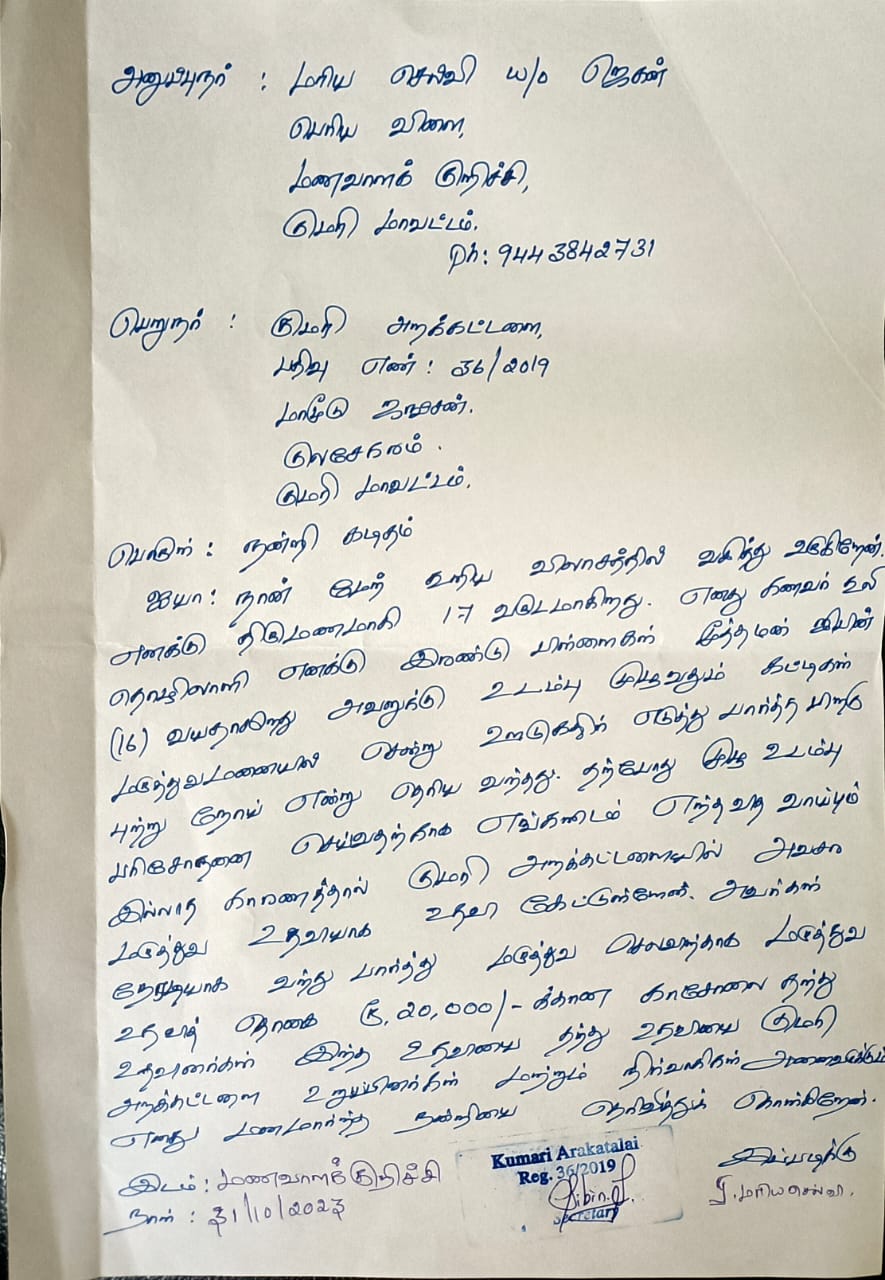 அனுப்புநர் : மரிய செல்வி w/o ஜெகன்
பெரிய விளை,
மணவாளக் குறிச்சி,
குமரி மாவட்டம்.
Ph: 9443842731
பெறுநர் : குமரி அறக்கட்டளை,
பதிவு எண் : 36/2019
மாமூடு ஜங்சன்.
குலசேகரம்.
குமரி மாவட்டம்.
பொருள் : நன்றி கடிதம்
ஐயா : நான் மேற் கூறிய விலாசத்தில் வசித்து வருகிறேன்.
எனக்கு திருமணமாகி 17 வருடமாகிறது. எனது கணவர் கூலி
தொழிலாளி எனக்கு இரண்டு பிள்ளைகள் மூத்தமகன்
(16) வயதாகிறது அவனுக்கு உடம்பு முழுவதும் கட்டிகள்
மருத்துவமனையில் சென்று எடுத்து பார்த்த பிறகு
புற்று நோய் என்று தெரிய வந்தது. தற்போது முழு உடம்பு
பரிசோதனை செய்வதற்காக எங்களிடம் எந்தவித வாய்ப்பும்
இல்லாத காரணத்தால் குமரி அறக்கட்டளையில் அவசர
மருத்துவ உதவியாக உதவி கேட்டுள்ளேன். அவர்கள்
நேரடியாக வந்து பார்த்து மருத்துவ செலவிற்காக மருத்துவ
உதவித் தொகை ரூ.20,000/- க்கான காசோலை தந்து
உதவினார்கள் இந்த உதவியை தந்து உதவியை குமரி
அறக்கட்டளை உறுப்பினர்கள் மற்றும் நிர்வாகிகள் அனைவருக்கும்
எனது மனமார்ந்த நன்றியை தெரிவித்துக் கொள்கிறேன்.
இடம் : மணவாளக்குறிச்சி
நாள் : 31/10/2023
Kumari Arakatalai
Reg. 36/2019
Secretary
இப்படிக்கு
மரியசெல்வி.